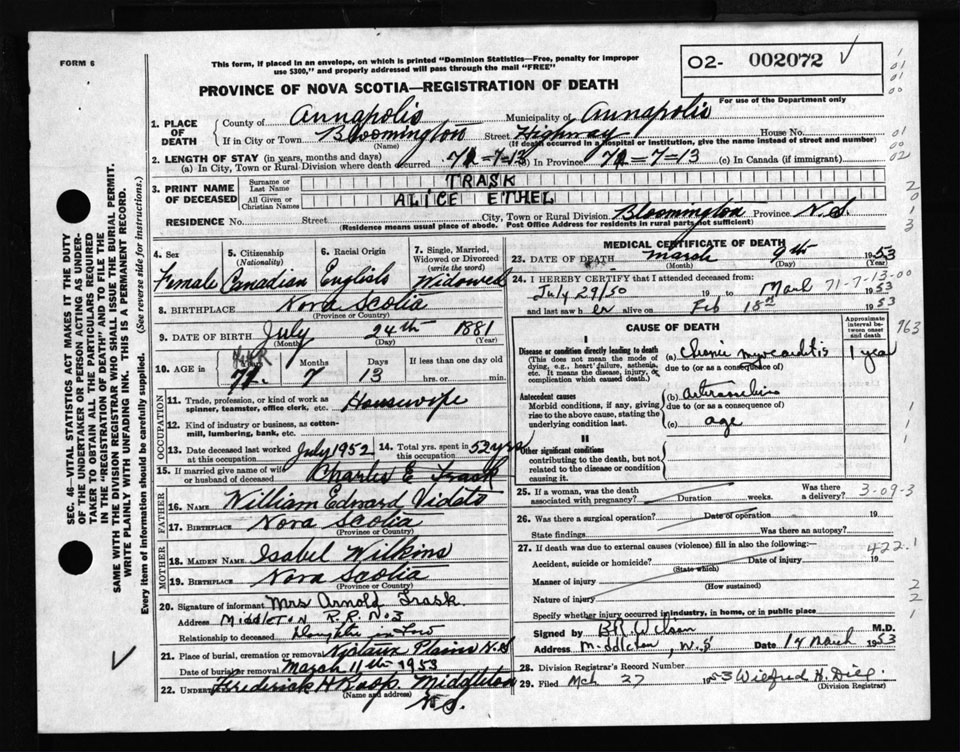 FORM 6
This form, if placed in an envelope, on which is printed "Dominion Statistics—Free, penalty for improper
use $300," and properly addressed will pass through the mail "FREE"
02- 002072
For use of the Department only
PROVINCE OF NOVA SCOTIA—REGISTRATION OF DEATH
1. PLACE OF DEATH County of Annapolis Municipality of Annapolis
If in City or Town Bloomington Street Highway House No.
(Name) (If death occurred in a hospital or institution, give the name instead of street and number)
2. LENGTH OF STAY (in years, months and days)
(a) In City, Town or Rural Division where death occurred 71-7-13 (b) In Province 71-7-13 (c) In Canada (if immigrant)
3. PRINT NAME OF DECEASED
Surname or Last Name TRASK
All Given or Christian Names ALICE ETHEL
RESIDENCE No. Street City, Town or Rural Division Bloomington Province N.S.
(Residence means usual place of abode. Post Office Address for residents in rural parts not sufficient)
4. Sex 5. Citizenship (Nationality) 6. Racial Origin 7. Single, Married, Widowed or Divorced (write the word)
Female Canadian English Widowed
8. BIRTHPLACE Nova Scotia
(Province or Country)
9. DATE OF BIRTH July 24th 1881
(Month) (Day) (Year)
10. AGE in Months Days If less than one day old
7 13 hrs. or min.
OCCUPATION
11. Trade, profession, or kind of work as
spinner, teamster, office clerk, etc. Housewife
12. Kind of industry or business, as cotton-
mill, lumbering, bank, etc.
13. Date deceased last worked at this occupation July 1952 14. Total yrs. spent in this occupation 52 yrs
15. If married give name of wife
or husband of deceased Charles E Trask
FATHER
16. NAME William Edward Vidito
17. BIRTHPLACE Nova Scotia
(Province or Country)
MOTHER
18. MAIDEN NAME Isabel Wilkins
19. BIRTHPLACE Nova Scotia
(Province or Country)
20. Signature of informant Mrs Arnold Trask
Address Middleton R.R. No 3
Relationship to deceased Daughter in Law
21. Place of burial, cremation or removal Nictaux Plains N.S
Date of burial or removal March 11th 1953
22. UNDERTAKER Frederick H Roop Middleton
(Name and address) N.S.
MEDICAL CERTIFICATE OF DEATH
23. DATE OF DEATH March 9th 1953
(Month) (Day) (Year)
24. I HEREBY CERTIFY that I attended deceased from:
July 29/50 19 to March 71-7-13-00 1953
and last saw her alive on Feb 18th 1953
CAUSE OF DEATH
Approximate interval between onset and death
963
I
Disease or condition directly leading to death (a) myocarditis 1 year
(This does not mean the mode of dying, e.g., heart failure, asthenia, etc. It means the disease, injury, or complication which caused death.) due to (or as a consequence of)
Antecedent causes (b)
Morbid conditions, if any, giving rise to the above cause, stating the underlying condition last. due to (or as a consequence of)
(c) age
II
Other significant conditions
contributing to the death, but not related to the disease or condition causing it.
25. If a woman, was the death associated with pregnancy? Duration weeks. Was there a delivery? 3-09-3
26. Was there a surgical operation? Date of operation 19
State findings Was there an autopsy?
27. If death was due to external causes (violence) fill in also the following:—
422.1
Accident, suicide or homicide? Date of injury 19
(State which)
Manner of injury
(How sustained)
Nature of injury
Specify whether injury occurred in industry, in home, or in public place
Signed by B.R. Wilson M.D.
Address Middleton, N.S Date 14 March 1953
28. Division Registrar's Record Number
29. Filed Mch 27 1953 Wilfred H.
(Division Registrar)
SEC. 46—VITAL STATISTICS ACT MAKES IT THE DUTY
OF THE UNDERTAKER OR PERSON ACTING AS UNDER-
TAKER TO OBTAIN ALL THE PARTICULARS REQUIRED
IN THE "REGISTRATION OF DEATH" AND TO FILE THE
SAME WITH THE DIVISION REGISTRAR WHO SHALL ISSUE THE BURIAL PERMIT.
WRITE PLAINLY WITH UNFADING INK. THIS IS A PERMANENT RECORD.
Every item of information should be carefully supplied. (See reverse side for instructions.)